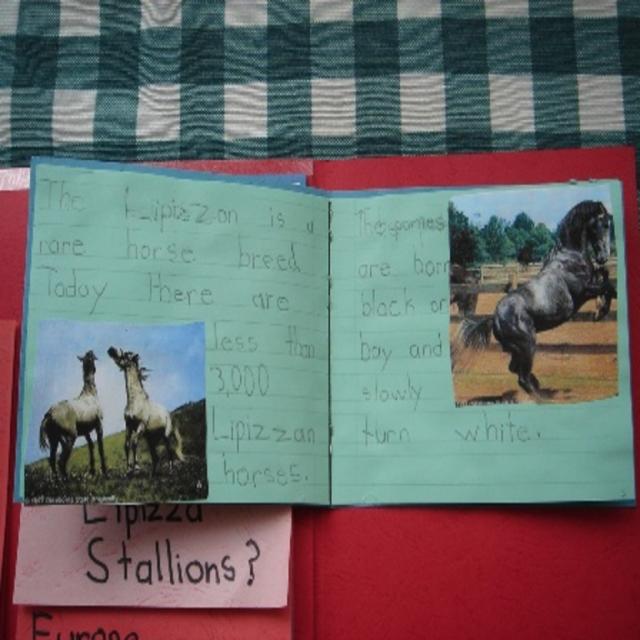 The Lipizzan is a
rare horse breed.
Today there are
less than
3,000
Lipizzan
horses.
These ponies
are born
black or
bay and
slowly
turn white.
Lipizza
Stallions?
Europe